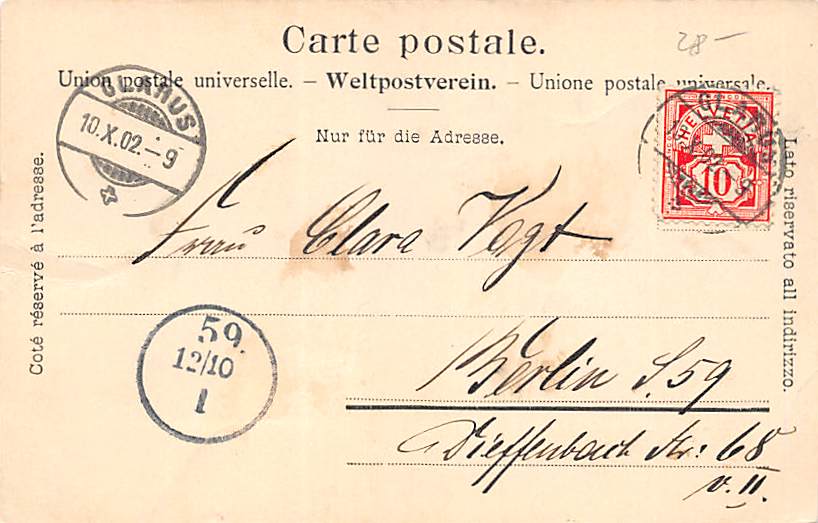 28 –
Carte postale.
Union postale universelle. – Weltpostverein. – Unione postale universale.
Nur für die Adresse.
GLARUS
10.X.02.–9
HELVETIA
10
GLARUS
Coté réservé à l'adresse.
Lato riservato all indirizzo.
Frau Clara Vogt
59.
12/10
1
Berlin S. 59
Dieffenbach Str: 68
v. II.